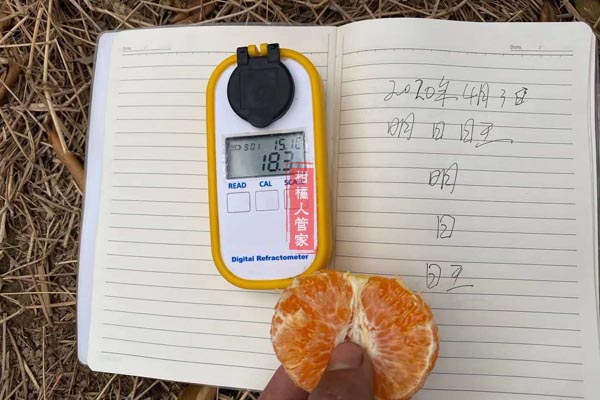 Date. /
Date. /
2020年4月3日
明日日王
明
日
日王
S01 15.1C
18.3
READ CAL SCALE
Digital Refractometer
柑橘人管家